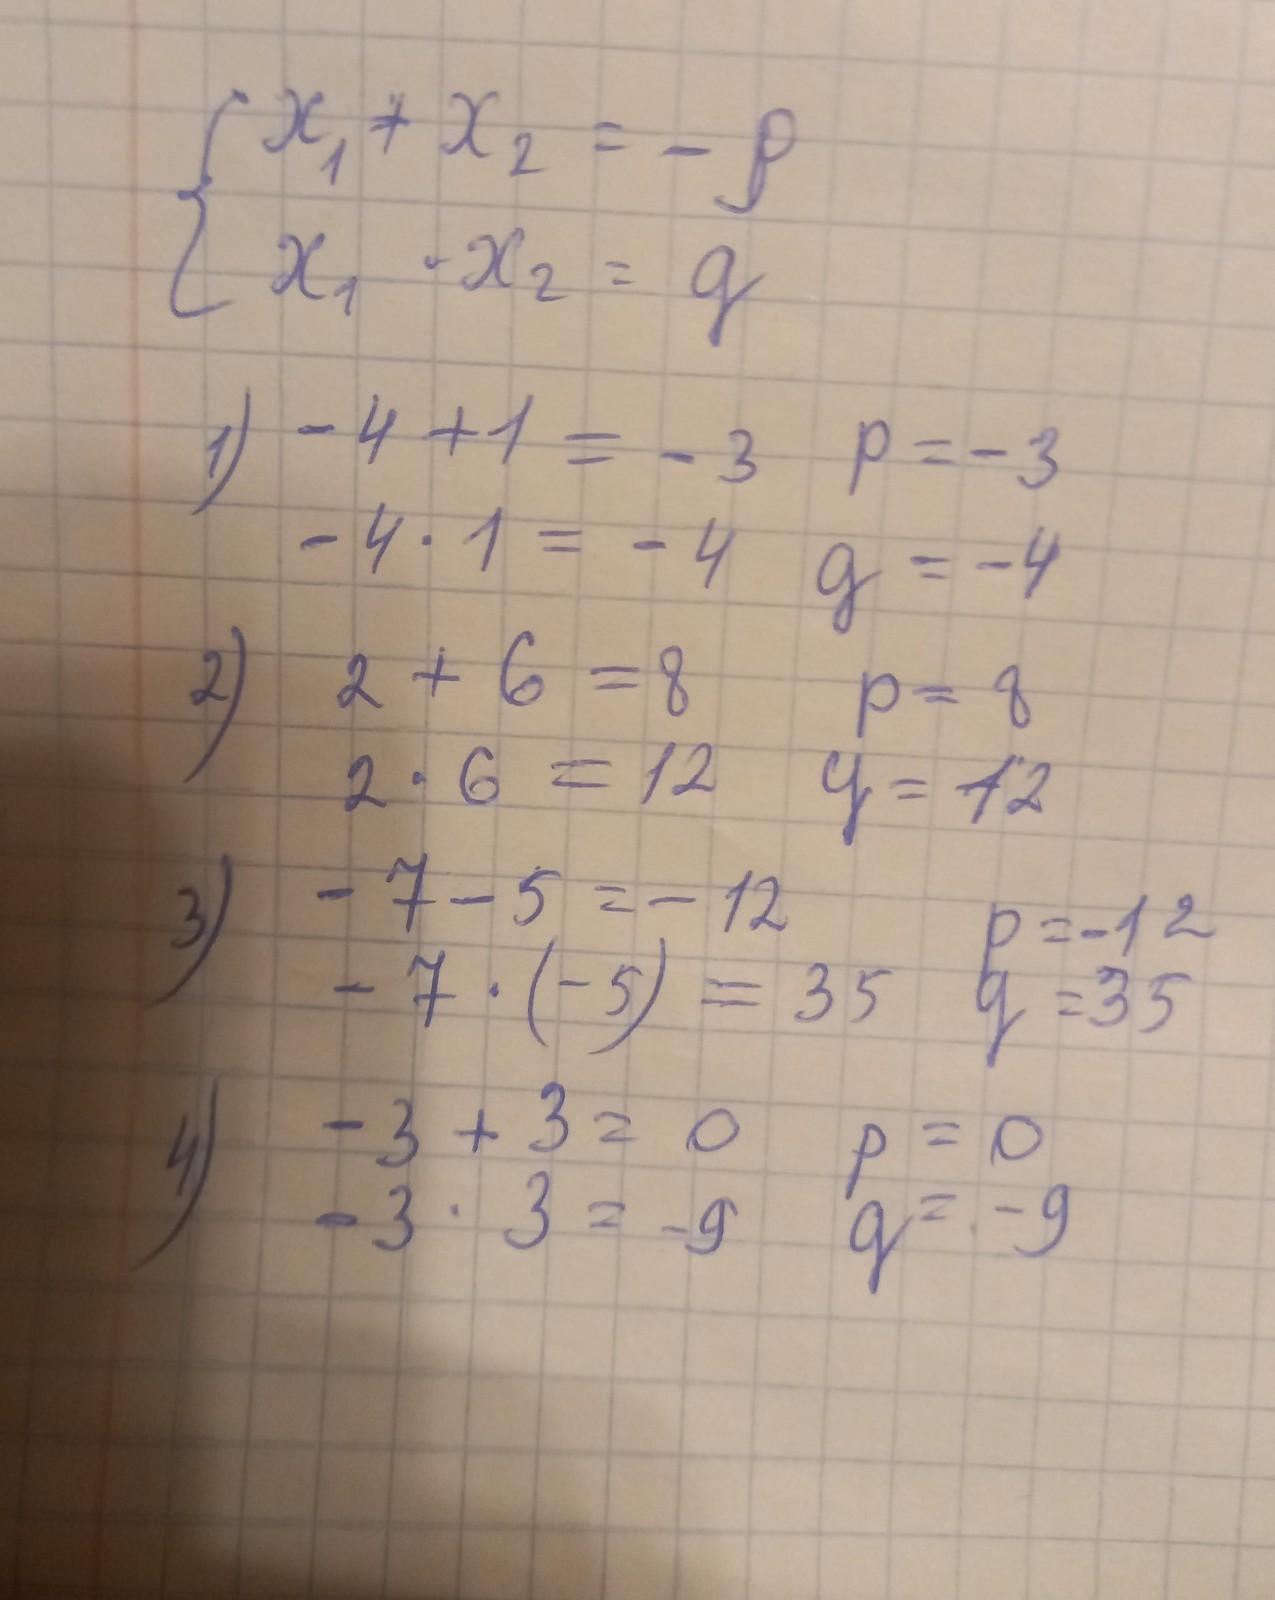 x₁ + x₂ = - p
x₁ · x₂ = q
1) -4 + 1 = -3 p = -3
-4 · 1 = -4 q = -4
2) 2 + 6 = 8 p = 8
2 · 6 = 12 q = 12
3) -7 - 5 = -12 p = -12
-7 · (-5) = 35 q = 35
4) -3 + 3 = 0 p = 0
-3 · 3 = -9 q = -9